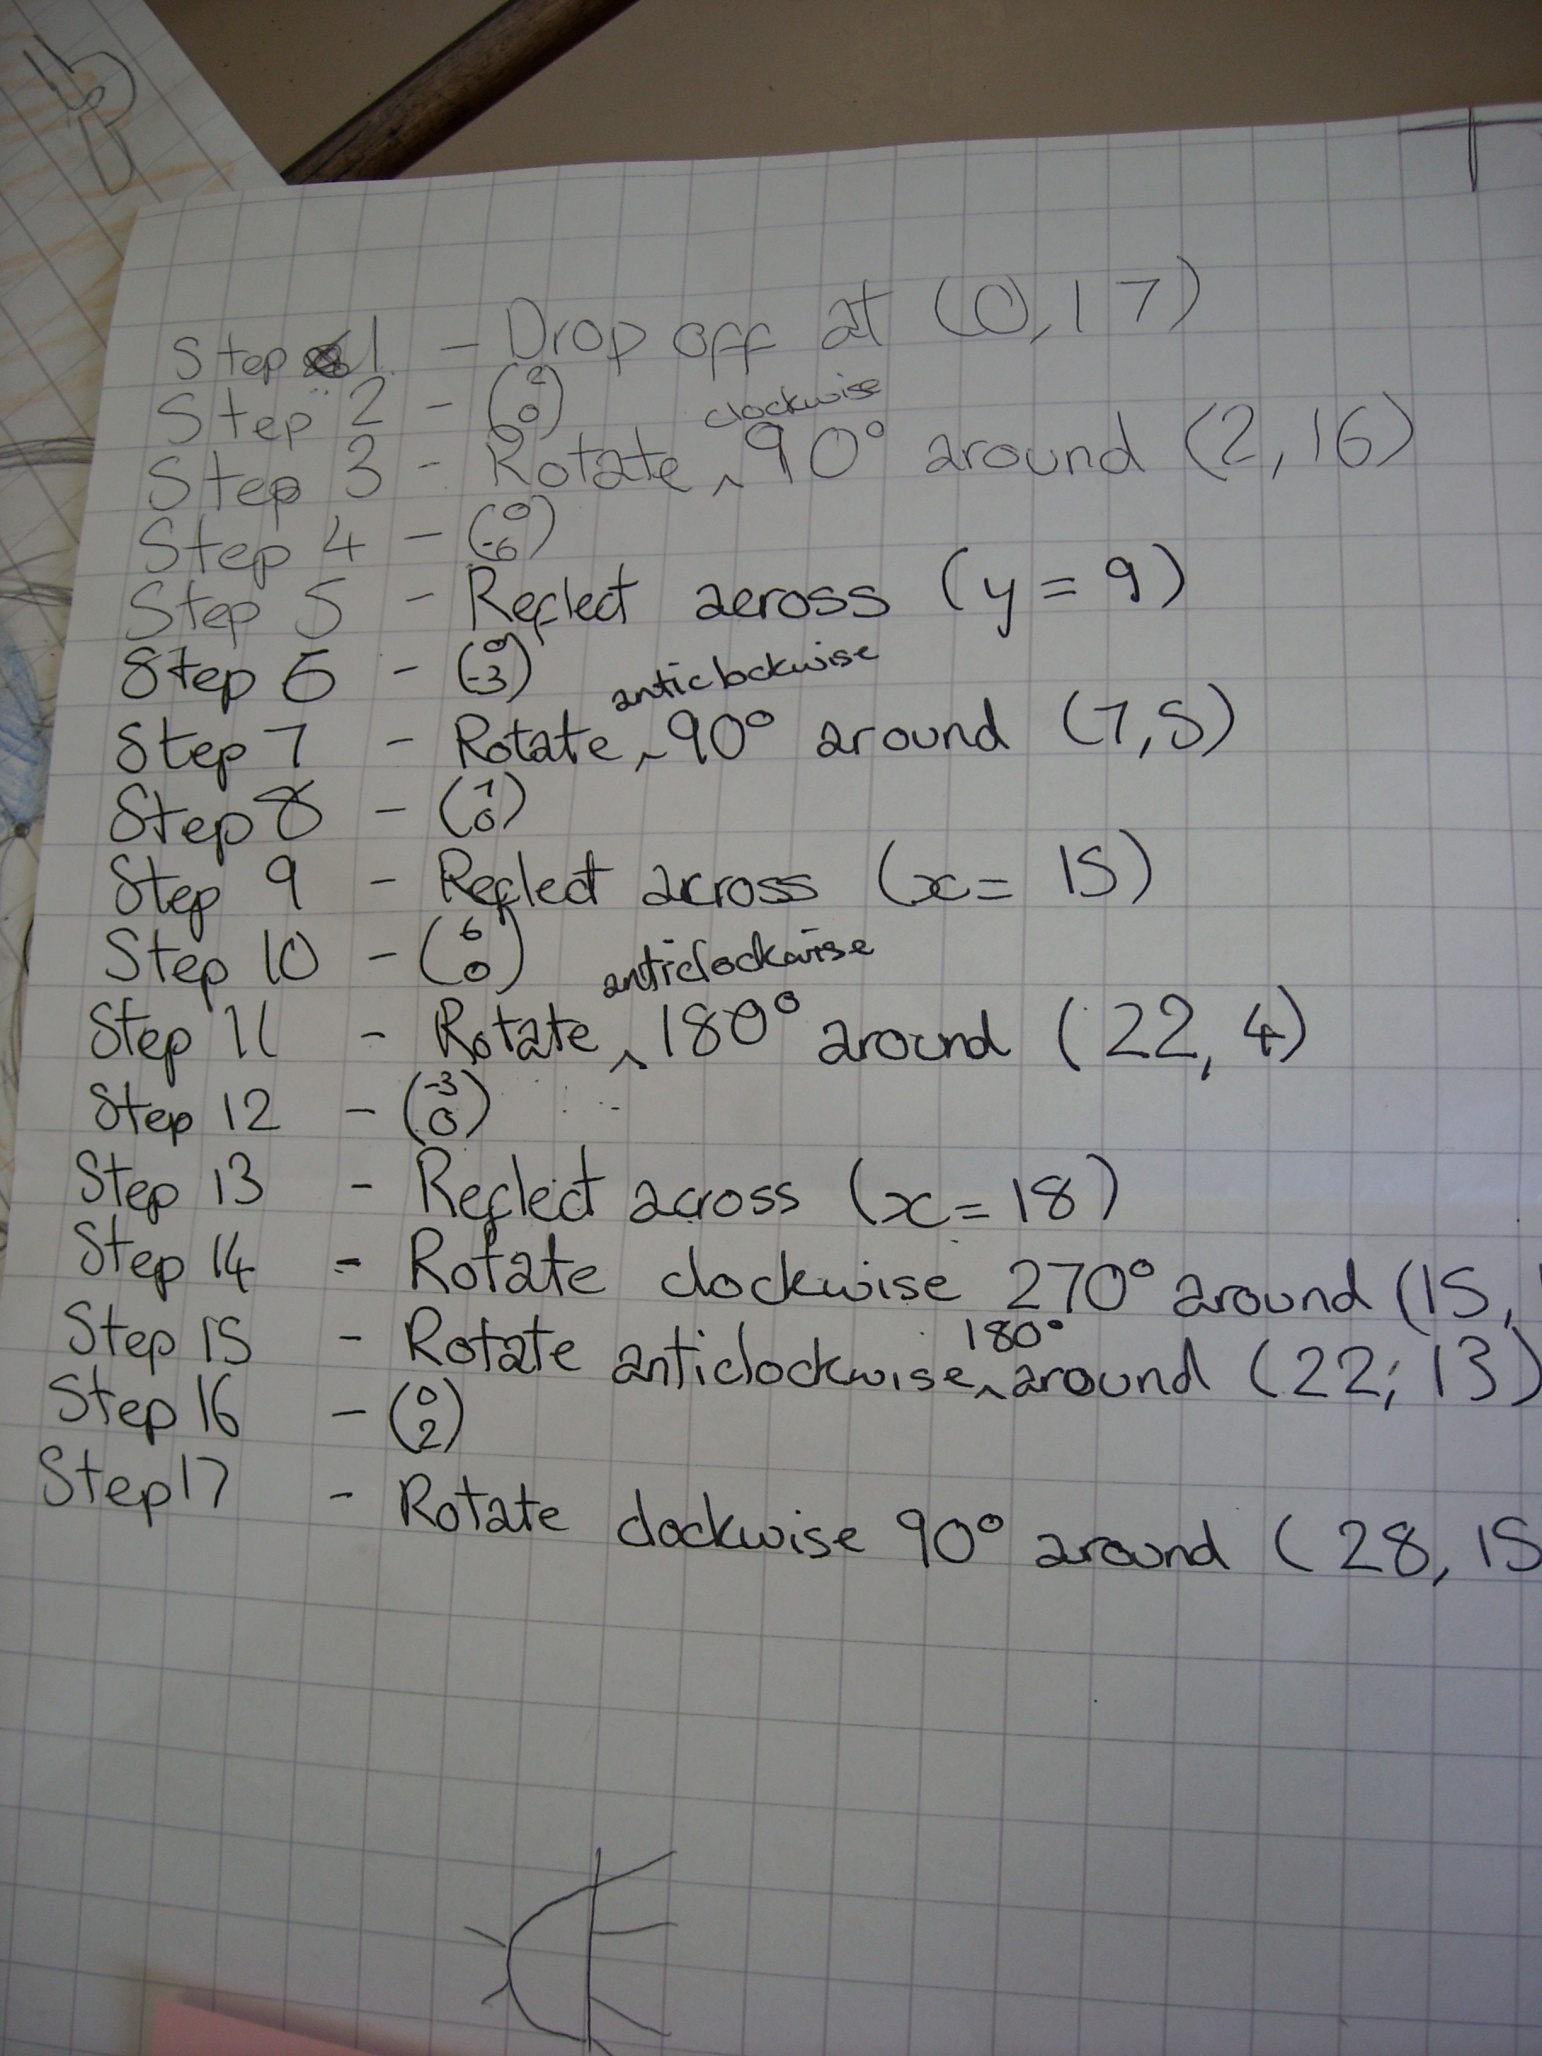 Step 1 - Drop off at (0,17)
Step 2 - (2 0)
Step 3 - Rotate ^ clockwise 90° around (2,16)
Step 4 - (0 -6)
Step 5 - Reflect aeross (y = 9)
Step 6 - (0 -3)
Step 7 - Rotate ^ anticlockwise 90° around (7,5)
Step 8 - (7 0)
Step 9 - Reflect across (x = 15)
Step 10 - (6 0)
Step 11 - Rotate ^ anticlockwise 180° around (22, 4)
Step 12 - (-3 0)
Step 13 - Reflect across (x = 18)
Step 14 - Rotate clockwise 270° around (15,
Step 15 - Rotate anticlockwise ^ 180° around (22, 13)
Step 16 - (0 2)
Step 17 - Rotate clockwise 90° around (28, 15